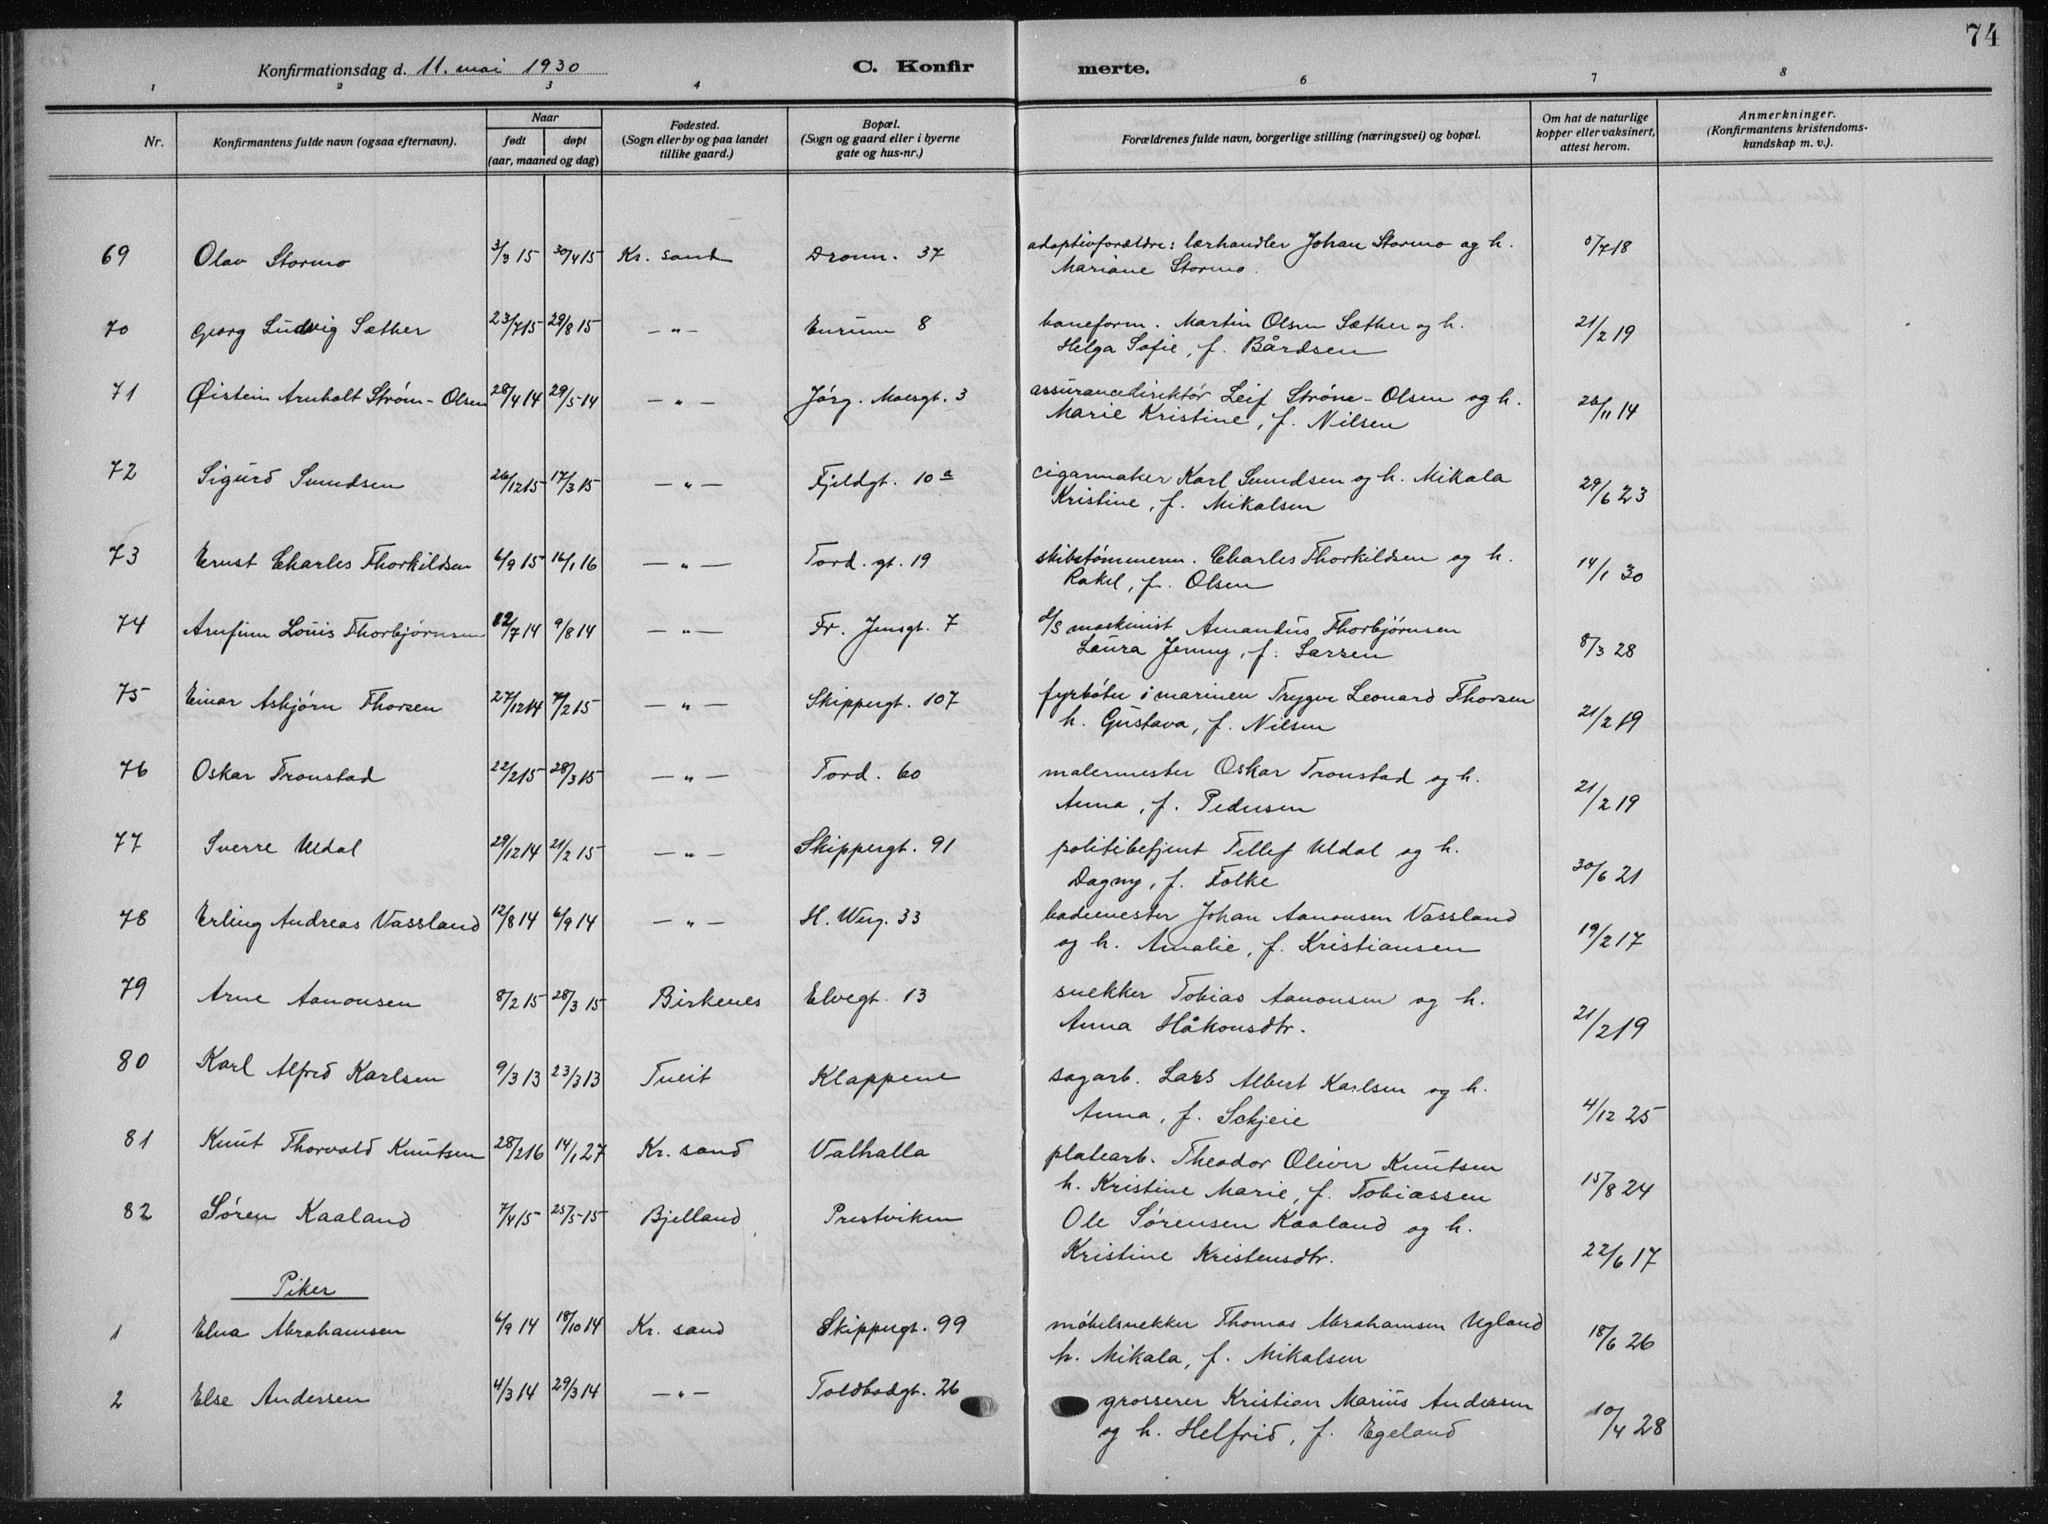 74
Konfirmationsdag d. 11. mai 1930 C. Konfir merte.
1 2 3 4 6 7 8
Nr. Konfirmantens fulde navn (ogsaa efternavn). Naar født døpt (aar, maaned og dag) Fødested. (Sogn eller by og paa landet tillike gaard.) Bopæl. (Sogn og gaard eller i byerne gate og hus-nr.) Forældrenes fulde navn, borgerlige stilling (næringsvei) og bopæl. Om hat de naturlige kopper eller vaksinert, attest herom. Anmerkninger. (Konfirmantens kristendoms-kundskap m. v.).
69 Olav Stormo 3/3 15 30/4 15 Kr. sand Dronn. 37 adoptivforældre: lærhandler Johan Stormo og h. /7 18
Mariane Stormo.
70 Georg Ludvig Sæther 23/7 15 29/8 15 —"— 8 baneform. Martin Olsen Sæther og h. 21/2 19
Helga Sofie, f. Bårdsen
71 Øistein Arnholt Strøm-Olsen 28/4 14 29/5 14 —"— Jørg. Moesgt. 3 assurancedirektør Leif Strøm-Olsen og h. 26/11 14
Marie Kristine, f. Nilsen
72 Sigurd Svendsen 26/12 15 17/3 15 —"— Fjeldgt. 10a cigarmaker Karl Svendsen og h. Mikala 29/6 23
Kristine, f. Mikalsen
73 Ernst Charles Thorkildsen 6/9 15 16/1 16 —"— Tord. gt. 19 skibstømmerm. Charles Thorkildsen og h. 14/1 30
Rakel, f. Olsen
74 Arnfinn Louis Thorbjørnsen 12/7 14 9/8 14 —"— Fr. Jensgt. 7 d/s maskinist Amandus Thorbjørnsen 8/3 28
Laura Jenny, f. Larsen
75 Einar Asbjørn Thorsen 27/12 14 7/2 15 —"— Skippergt. 107 fyrbøter i marinen Trygve Leonard Thorsen 21/2 19
h. Gustava, f. Nilsen
76 Oskar Tronstad 22/2 15 28/3 15 —"— Tord. 60 malermester Oskar Tronstad og h. 21/2 19
Anna, f. Pedersen
77 Sverre Udal 29/12 14 21/2 15 —"— Skippergt. 91 politibetjent Tellef Udal og h. 30/6 21
Dagny, f. Folke
78 Erling Andreas Vassland 12/8 14 6/9 14 —"— H. Werg. 33 bademester Johan Aanonsen Vassland 19/2 17
og h. Amalie, f. Kristiansen
79 Arne Aanonsen 8/2 15 28/3 15 Birkenes Elvegt. 13 snekker Tobias Aanonsen og h. 21/2 19
Anna Håkonsdtr.
80 Karl Alfred Karlsen 9/3 13 23/3 13 Tveit Klappene sagarb. Lars Albert Karlsen og h. 4/12 25
Anna, f. Schjeie
81 Knut Thorvald Knutsen 28/2 16 14/1 27 Kr. sand Valhalla platearb. Theodor Oliver Knutsen 15/8 24
h. Kristine Marie, f. Tobiassen
82 Søren Kaaland 7/4 15 25/5 15 Bjelland Prestviken Ole Sørensen Kaaland og h. 22/6 17
Kristine Kristensdtr.
Piker
1 Elna Abrahamsen 6/9 14 18/10 14 Kr. sand Skippergt. 99 møbelsnekker Thomas Abrahamsen Ugland 18/6 26
h. Mikala, f. Mikalsen
2 Else Andersen 4/3 14 29/3 14 —"— Toldbodgt. 26 grosserer Kristian Marius Andersen 10/4 28
og h. Helfrid, f. Egeland